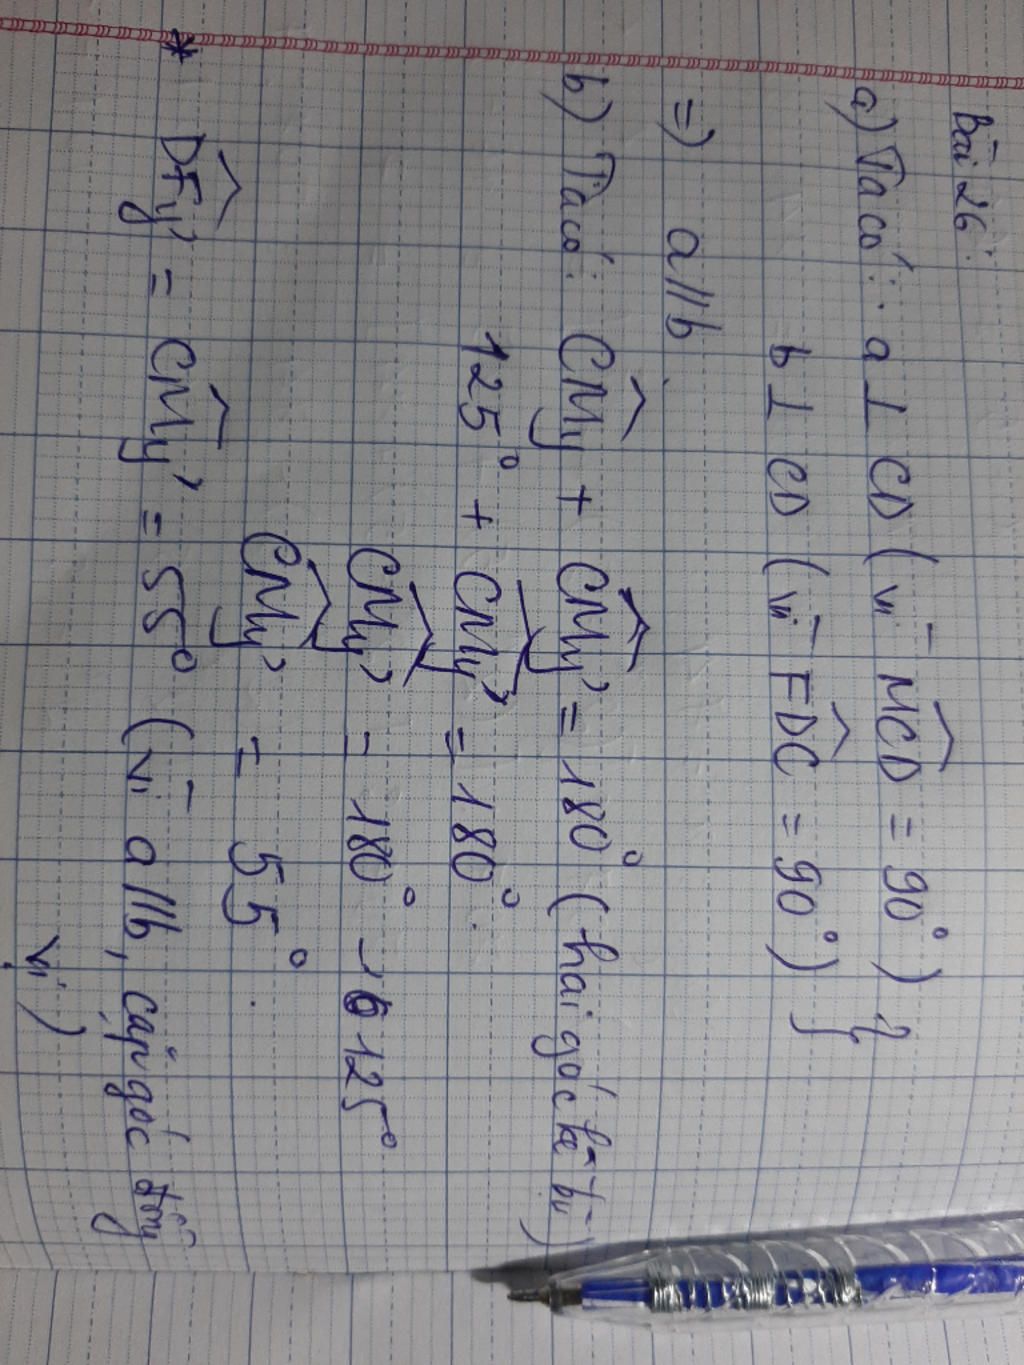 Bài 26:
a) Ta có: a ⊥ CD (vì MCD = 90°) }
b ⊥ CD (vì FDC = 90°) }
=) a // b.
b) Ta có: CMy + CMy' = 180° (hai góc kề bù)
125° + CMy' = 180°.
CMy' = 180° - 125°
CMy' = 55°.
* DFy' = CMy' = 55° (vì a // b, cặp góc đồng
vị)